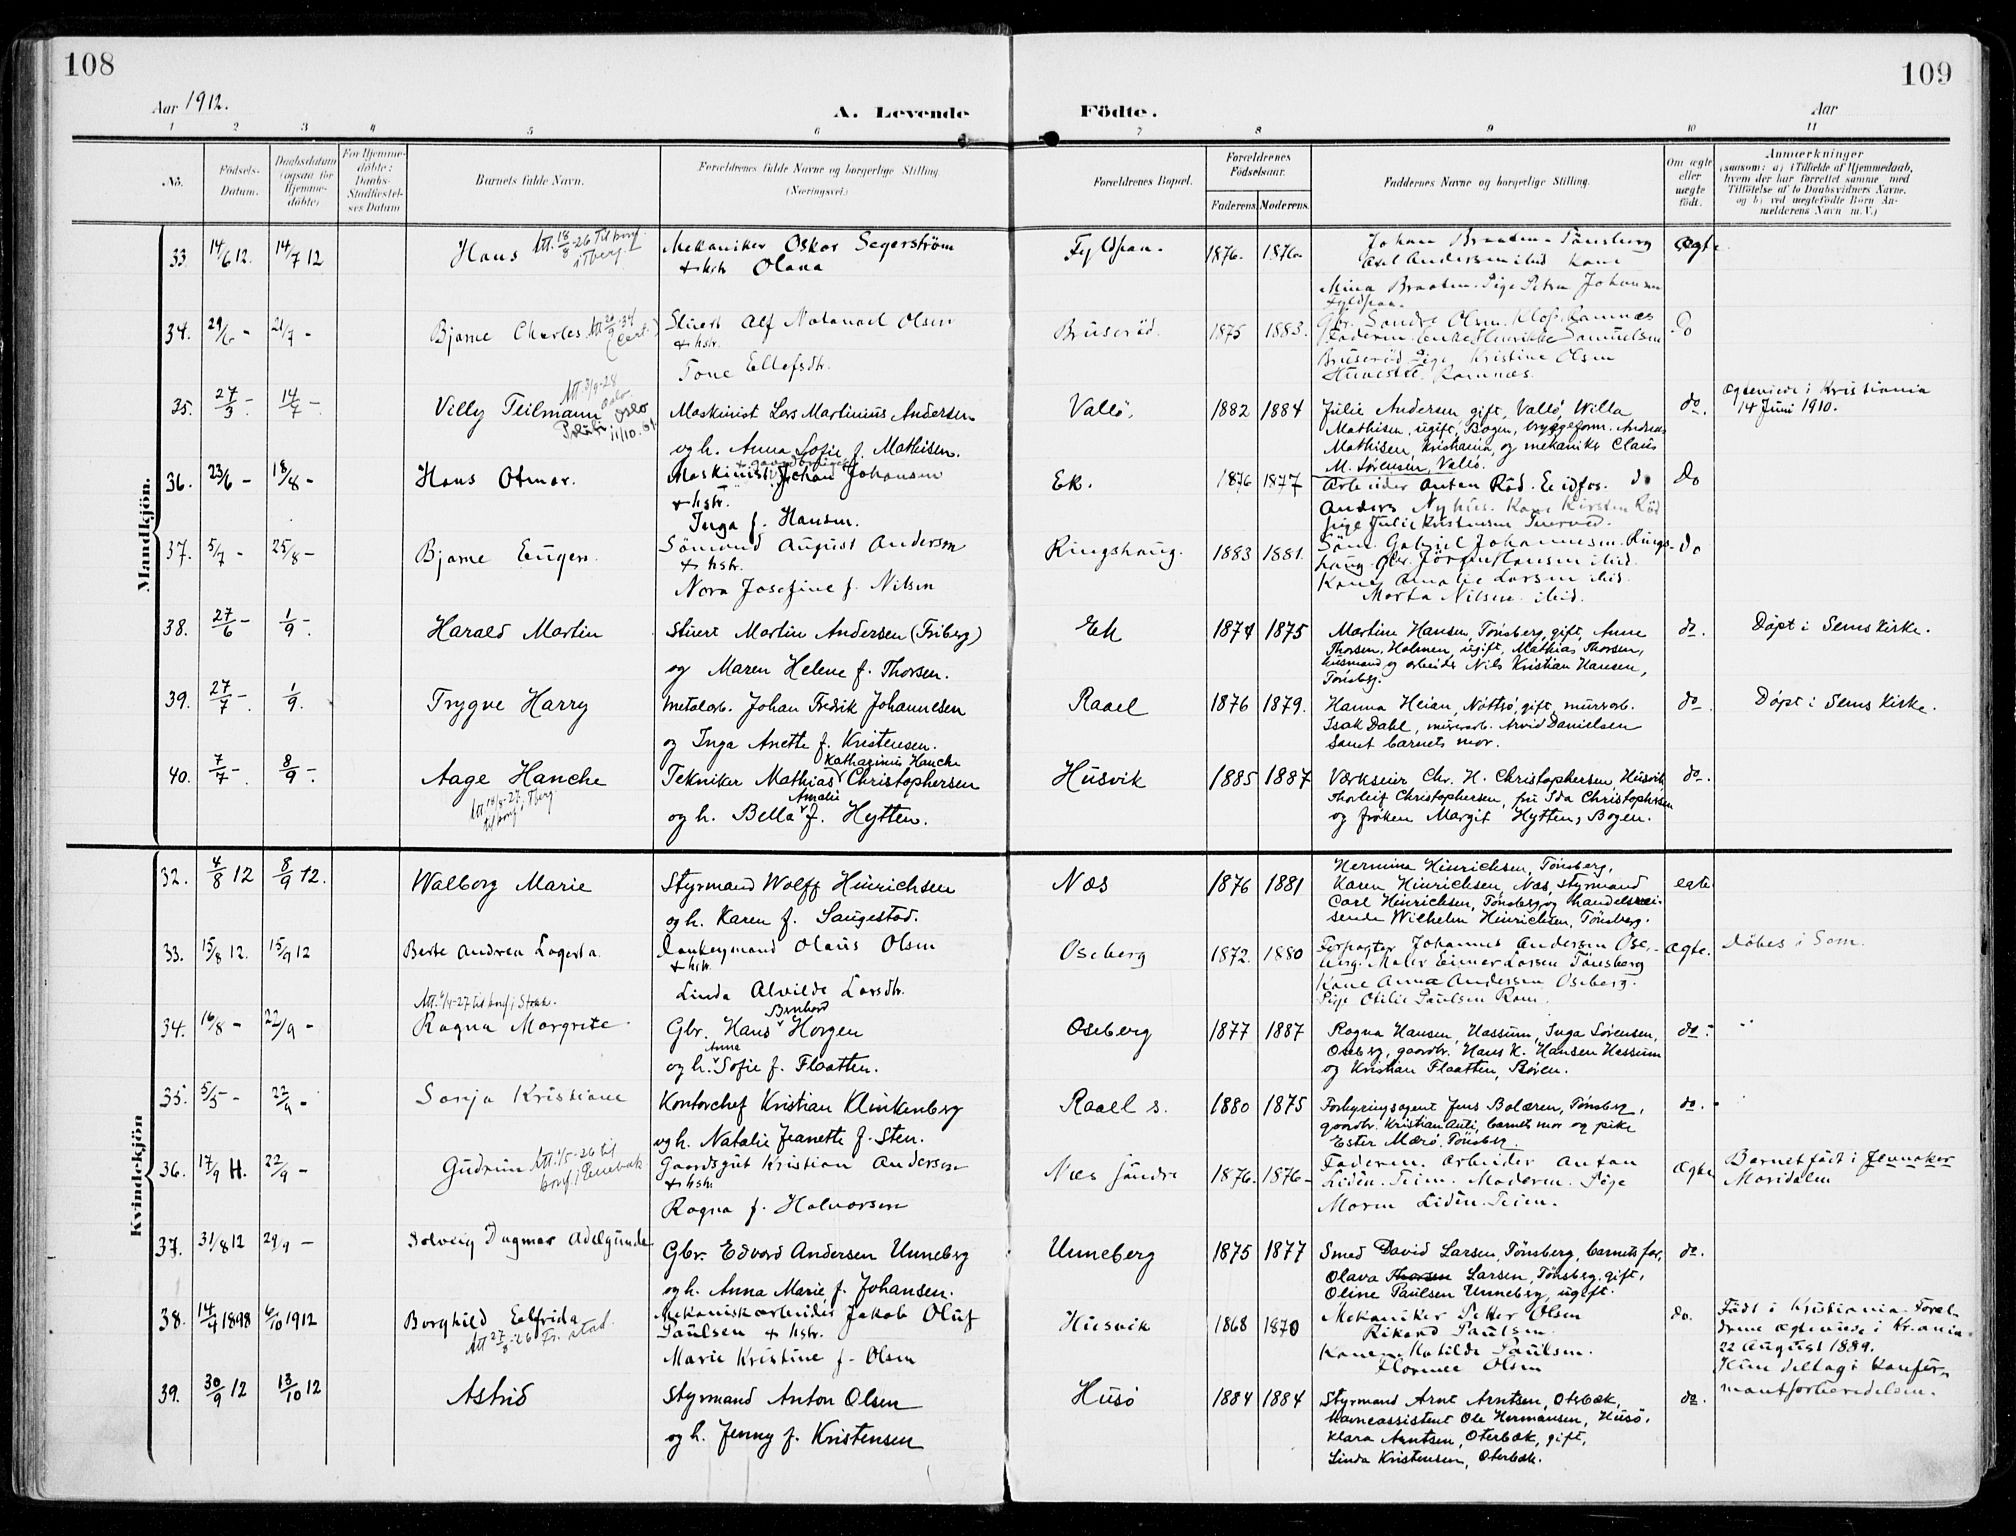 108
109
Aar 1912.
A. Levende Födte.
Aar
1 2 3 4 5 6 7 8 9 10 11
No.
Födsels-Datum.
Daabsdatum (ogsaa for Hjemme-döbte)
For Hjemme-döbte: Daabs-Stadfæstel-ses Datum
Barnets fulde Navn.
Forældrenes fulde Navne og borgerlige Stilling.
(Næringsvei.)
Forældrenes Bopæl.
Forældrenes Födselsaar.
Faderens. Moderens.
Faddernes Navne og borgerlige Stilling.
Om ægte eller uægte födt.
Anmærkninger
(saasom: a) i Tilfælde af Hjemmedaab,
hvem der har forrettet samme, med
Tilföielse af to Daabsvidners Navne,
og b) ved uægtefödte Börn An-
melderens Navn m. V.)
Mandkjön.
33. 14/6 12. 14/7 12 Hans Att. 18/8-26 til konf. i Tberg Mekaniker Oskar Segerström
+ hstr Olava
Fyldpaa. 1876. 1876. Johan Braaten Tönsberg
Axel Andersen ibid Kone
Mina Braaten. Pige Petra Johansen
Fyldpaa.
ægte
34. 29/6 - 21/7 - Bjarne Charles. Stuert Alf Natanael Olsen
+ hstr.
Tone Ellefsdtr.
Bruseröd. 1875 1883. Gbr. Sondre Olsen Klop. Ramnæs
Faderen. Enke Henrikke Samuelsen
Bruseröd Pige Kristine Olsen
Ramnæs.
Do
35. 27/3 - 14/7 - Villy Teilmann Att. 3/9-28 Oslo
Maskinist Lars Martinius Andersen
og h. Anna Sofie f. Mathisen.
Vallö. 1882 1884 Julie Andersen gift, Vallö, Willa
Mathisen, ugift, Bogen, bryggeform. Andreas
Mathisen, Kristiania, og mekaniker Claus
M. Sørensen, Vallö.
do. Ægteviede i Kristiania
14 Juni 1910.
36. 23/6 - 18/8 - Hans Otmar. Maskinist Johan Johansen
+ hstr.
Inga f. Hansen.
Ek. 1876 1877 Arbeider Anton Röd. Eidfos. do
Anders Nyhus. Kone Kirsten Röd
Pige Julie Kristensen
Do
37. 5/7 - 25/8 - Bjarne Eugen. Sömand August Andersen
+ hstr.
Nora Josefine f. Nilsen
Ringshaug. 1883 1881. Söm. Gabriel Johannesen. Rings-
haug. Gbr. Jörgen Hansen ibid.
Kone Amalie Larsen ibid.
Marta Nilsen. ibid.
do
38. 27/6 - 1/9 -. Harald Martin Stuert Martin Andersen (Friberg)
og Maren Helene f. Thorsen.
Ek 1874 1875 Martine Hansen, Tønsberg, gift, Anne
Thorsen, Holmen, ugift, Mathias Thorsen,
husmand og arbeider Nils Kristian Hansen,
Tønsberg.
do. Døpt i Sems Kirke.
39. 27/7 -. 1/9. Trygve Harry Metalarb. Johan Fredrik Johannesen
og Inga Anette f. Kristensen.
Raael 1876 1879. Hanna Heian, Nøttrø, gift, murarb.
Isak Dahl, murarb. Arvid Danielsen
samt barnets mor.
do. Døpt i Sems Kirke.
40. 7/7 -. 8/9 -. Aage Hanche
Att. 14/8-27, Tberg til konf.
Tekniker Mathias Katharinus Hanche Christophersen
og h. Bella Amalie f. Hytten.
Husvik 1885 1887 Værkseier Chr. H. Christophersen Husvik,
Thorleif Christophersen, fru Ida Christophersen
og frøken Margit Hytten, Bogen.
do.
Kvindekjön
32. 4/8 12 8/9 12. Walborg Marie Styrmand Wolff Hinrichsen
og h. Karen f. Saugestad.
Næs 1876 1881 Hermine Hinrichsen, Tønsberg,
Karen Hinrichsen, Næs, styrmand
Carl Hinrichsen, Tønsberg og handelsrei-
sende Wilhelm Hinrichsen, Tønsberg.
egte
33. 15/8 12. 15/9 12 Berte Andrea Lagerta. Donkeymand Olaus Olsen
+ hstr.
Linda Alvilde Larsdtr.
Oseberg 1872. 1880 Forpagter Johannes Andersen Ose-
berg. Maler Einar Larsen Tönsberg
Kone Anna Andersen Oseberg.
Pige Otilie Paulsen Ram.
ægte. Döbes i Sem.
34. 16/8 - 22/9 - Ragna Margrete. Gbr. Hans Bernhard Horgen
og h. Anna Sofie f. Flaatten.
Oseberg 1877 1887 Ragna Hansen, Hassum, Inga Sørensen,
Oseberg, gaardbr. Hans K. Hansen Hassum
og Kristian Flaatten, Bøien.
do.
35. 5/5 - 22/9 - Sonja Kristiane Kontorchef Kristian Klinkenberg
og h. Natalie Jeanette f. Sten.
Raael s. 1880 1875 Forhyringsagent Jens Bolæren, Tønsberg,
gaardbr. Kristian Anti, barnets mor og pike
Ester Mærø, Tønsberg.
do.
36. 17/9 H. 22/9 - Gudrun Att. 1/5-26 til konf. i
Gaardsgut Kristian Andersen
+ hstr.
Ragna f. Halvorsen
Næs söndre 1876. 1876- Faderen. Arbeider Anton
Lidèn. Teien. Moderen. Pige
Maren Lidèn. Teien.
Ægte Barnet födt i
Maridalen
37. 31/8 12 29/9 - Solveig Dagmar Adelgunde Gbr. Edvard Andersen Unneberg
og h. Anna Marie f. Johansen.
Unneberg 1875 1877 Smed David Larsen, Tønsberg, barnets far,
Olava Thorsen Larsen, Tønsberg, gift,
Oline Paulsen Unneberg, ugift.
do.
38. 14/4 1898 6/10 1912 Borghild Elfrida
Att 27/8-26 Fr.stad.
Mekanisk arbeider Jakob Oluf
Paulsen + hstr.
Marie Kristine f. Olsen
Husvik 1868 1870 Mekaniker Petter Olsen
Rikard Paulsen.
Konen Matilde Paulsen.
Florence Olsen
do. Födt i Kristiania. Foræl-
drene ægteviede i Kr.ania
22 August 1889.
Hun deltog i Konfir-
mantforberedelsen.
39. 30/9 12 13/10 12 Astrid Styrmand Anton Olsen
og h. Jenny f. Kristensen
Husö 1884 1884 Styrmand Arnt Arntsen, Oterbæk,
havneassistent Ole Hermansen, Husö,
Klara Arntsen, Oterbæk, gift,
Linda Kristensen, Oterbæk.
do.